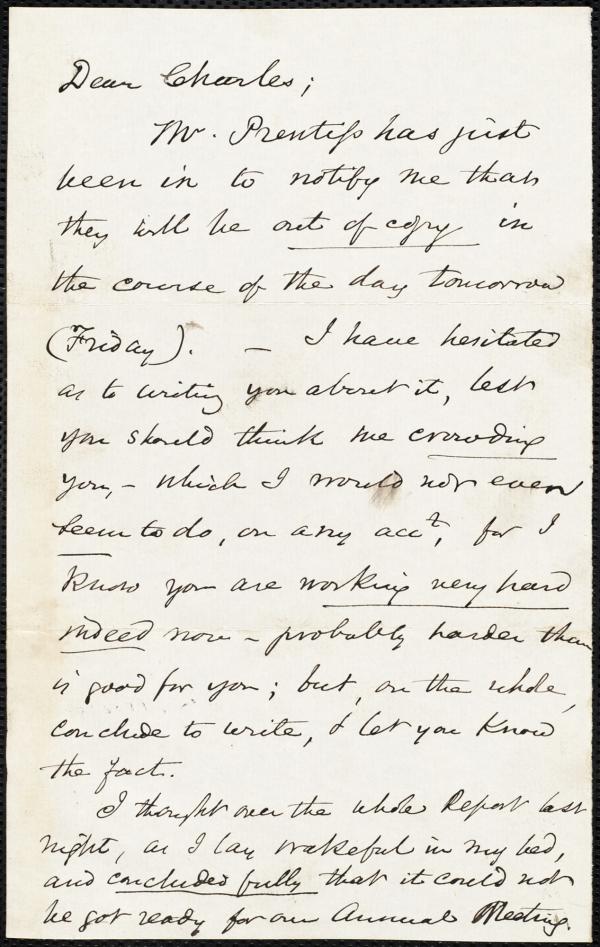 Dear Charles;
Mr. Prentiss has just
been in to notify me that
they will be out of copy in
the course of the day tomorrow
(Friday). – I have hesitated
as to writing you about it, lest
you should think me crowding
you, – which I would not even
seem to do, on any acct, for I
know you are working very hard
indeed now – probably harder than
is good for you; but, on the whole,
conclude to write, & let you know
the fact.
I thought over the whole Report last
night, as I lay wakeful in my bed,
and concluded fully that it could not
be got ready for our Annual Meeting.